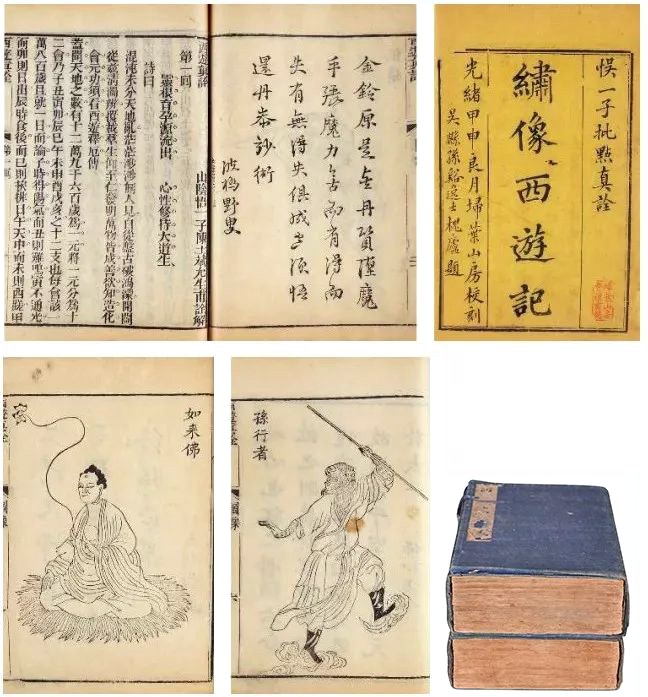 金鈴原是金丹質墮魔
手張魔力舍而有得而
失有無得失俱成須悟
還丹妙術
波鴉野叟
西遊真詮
第一回
山陰悟一子陳士斌允生甫詮解
靈根育孕源流出 心性修持大道生
詩曰
混沌未分天地亂茫茫渺渺無人見自從盤古破鴻濛開闢
從茲清濁辨覆載羣生仰至仁發明萬物皆成善欲知造化
會元功須看西遊釋厄傳
蓋聞天地之數有十二萬九千六百歲爲一元將一元分爲十
二會乃子丑寅卯辰巳午未申酉戌亥之十二支也每會該一
萬八百歲且就一日而論子時得陽氣而丑則雞鳴寅不通光
而卯則日出辰時食後而巳則挨排日午天中而未則西蹉申
西遊真詮
第一回
悞一子批點真詮
繡像西遊記
光緒甲申良月埽葉山房校刻
吳縣孫谿逸士槐廬題
如來佛
西遊真詮
圖像
孫行者
西遊真詮
圖像